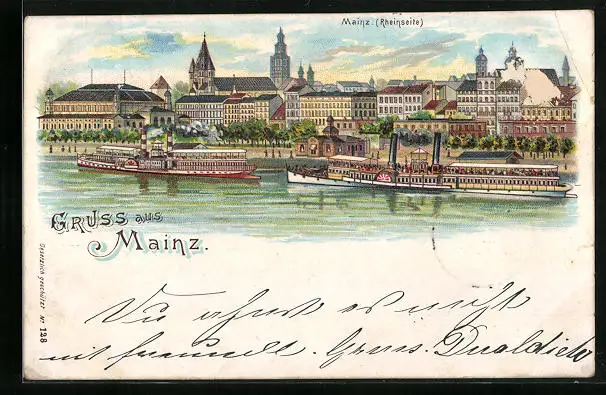 Mainz. (Rheinseite)
GRUSS aus
Mainz.
Gesetzlich geschützt Nr 128
Du ahnst es nicht
mit Gruss.